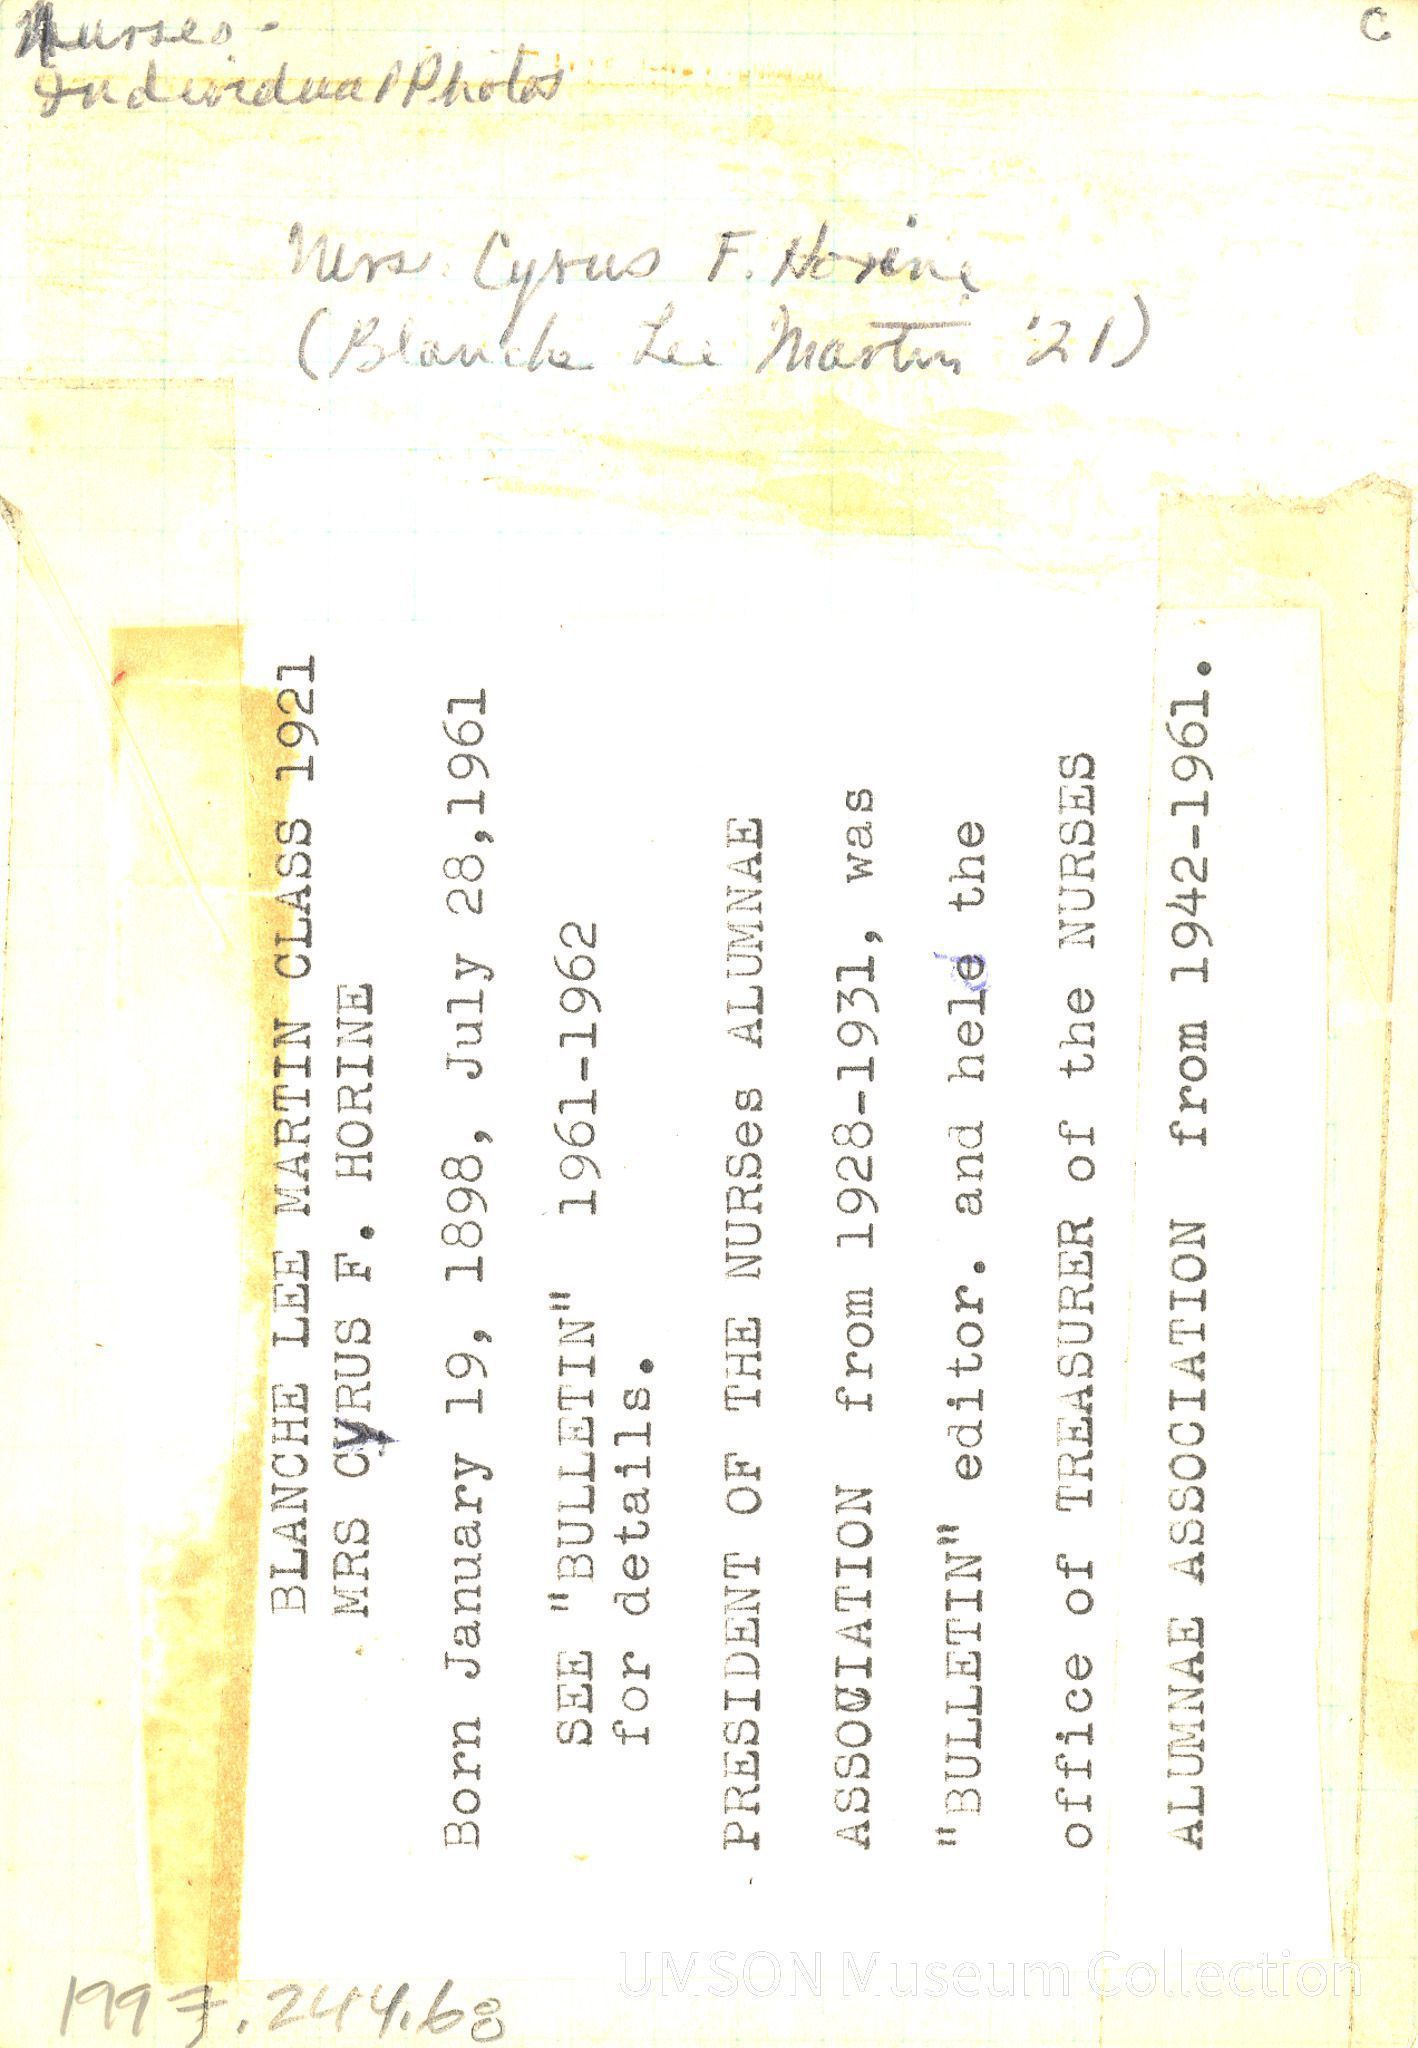 Nurses-
Individual Photos
C
Mrs. Cyrus F. Horine
(Blanche Lee Martin '21)
BLANCHE LEE MARTIN CLASS 1921
MRS CYRUS F. HORINE
Born January 19, 1898, July 28,1961
SEE "BULLETIN" 1961-1962
for details.
PRESIDENT OF THE NURSes ALUMNAE
ASSOCIATION from 1928-1931, was
"BULLETIN" editor. and held the
office of TREASURER of the NURSES
ALUMNAE ASSOCIATION from 1942-1961.
1997.244.68
UMSON Museum Collection